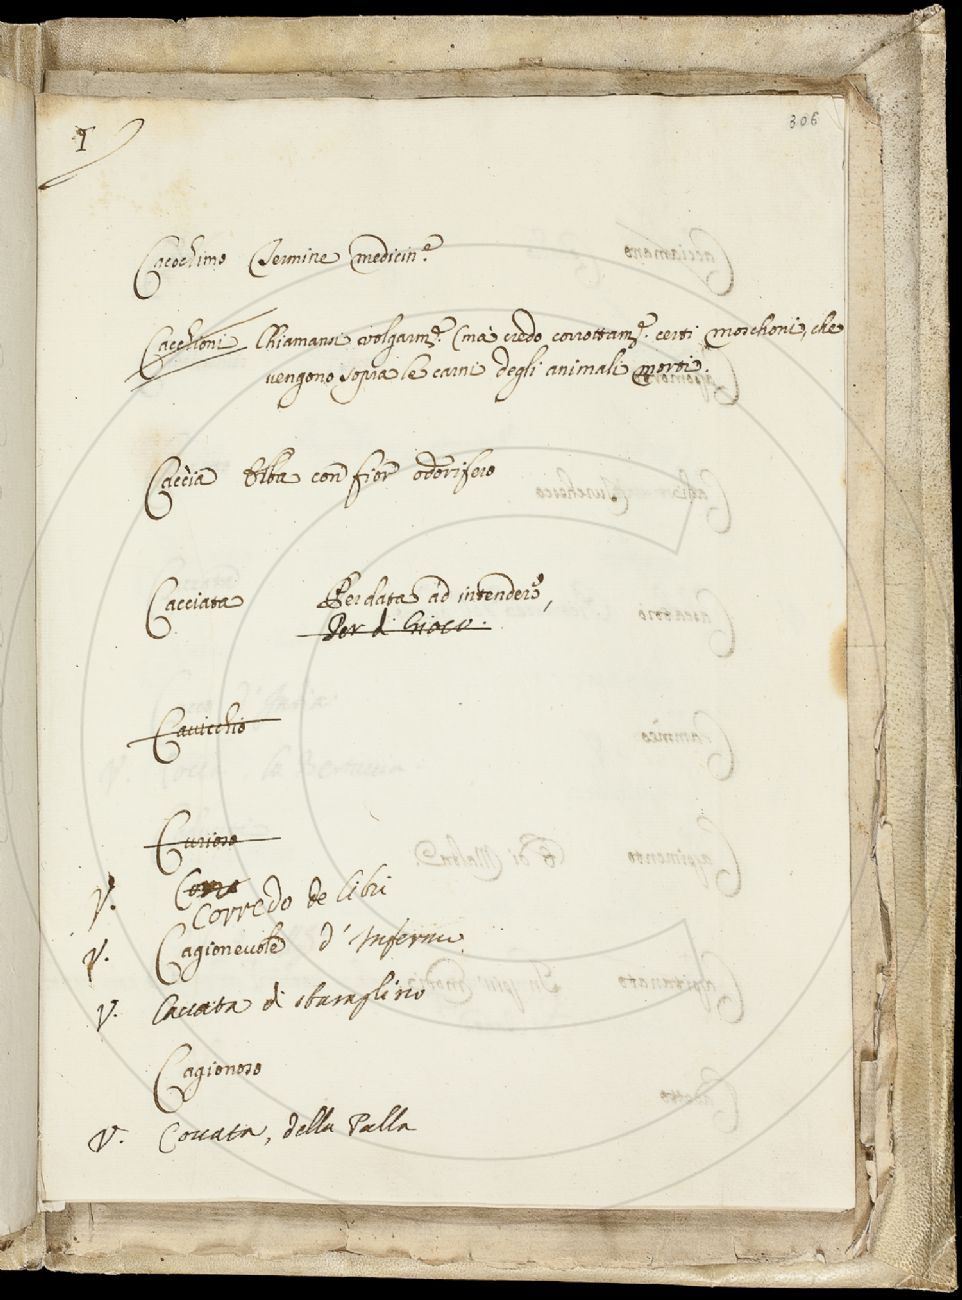 306
I
Cacochimo Termine medicin.e
Cacchioni Chiamansi volgarm.e (mà credo corrottam.e certi moschoni, che
vengono sopra le carni degli animali morti.
Caccia Erba con fior odorifero
Cacciata Per data ad intendere,
Per di Gioco.
Cavicchio
Curioso
V. Corredo de libri
V. Cagionevole d'Infermi
V. Cavata di sbaraglino
Cagionoso
V. Covata, della Palla